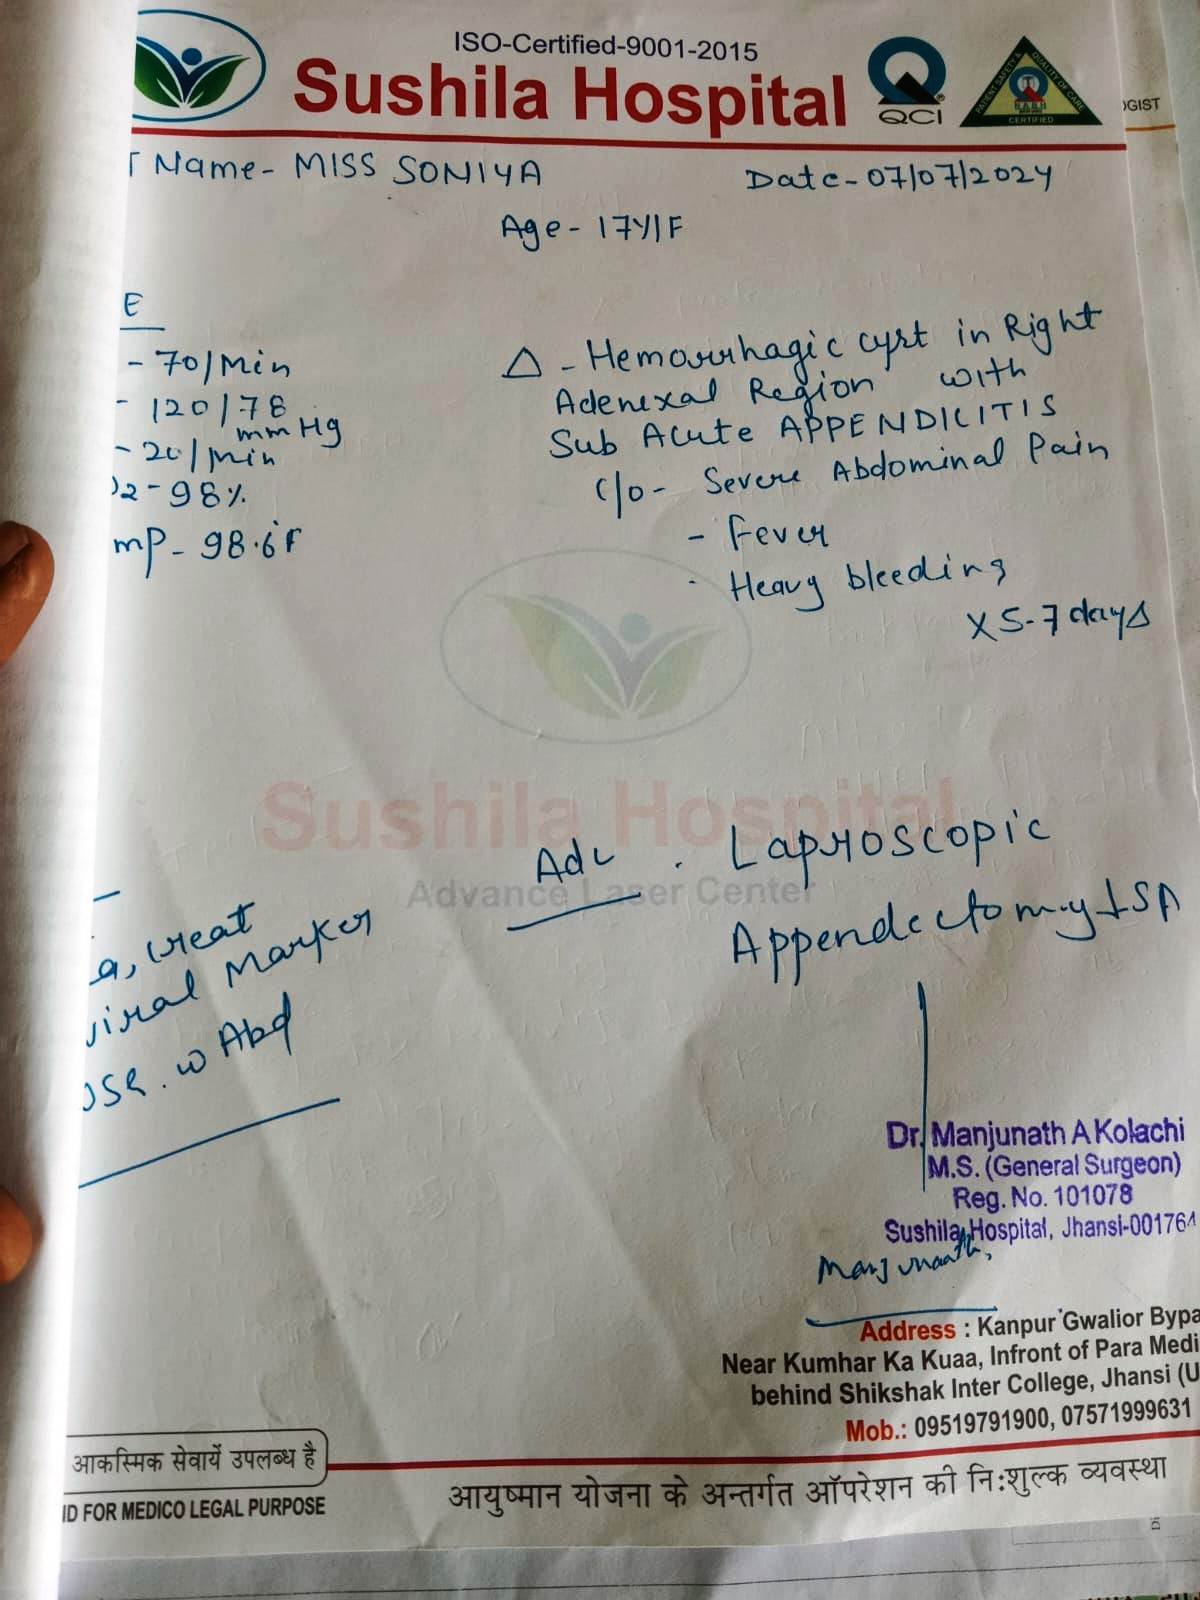 ISO-Certified-9001-2015
Sushila Hospital
QCI
PATIENT SAFETY & QUALITY OF CARE
CERTIFIED
OGIST
T Name- MISS SONIYA
Date-07/07/2024
Age- 17Y/F
E
- 70/Min
- 120/78 mmHg
- 20/Min
O2-98%
mp- 98.6°F
Δ - Hemorrhagic cyst in Right
Adenexal Region with
Sub Acute APPENDICITIS
c/o- Severe Abdominal Pain
- Fever
- Heavy bleeding
X 5-7 days
Sushila Hospital
Advance Laser Center
Adv . Laproscopic
Appendectomy ↓SA
a, creat
viral Marker
USG. W Abd
Dr. Manjunath A Kolachi
M.S. (General Surgeon)
Reg. No. 101078
Sushila Hospital, Jhansi-001764
Manjunaath
Address : Kanpur Gwalior Bypa
Near Kumhar Ka Kuaa, Infront of Para Medi
behind Shikshak Inter College, Jhansi (U
Mob.: 09519791900, 07571999631
आकस्मिक सेवायें उपलब्ध है
ID FOR MEDICO LEGAL PURPOSE
आयुष्मान योजना के अन्तर्गत ऑपरेशन की नि:शुल्क व्यवस्था